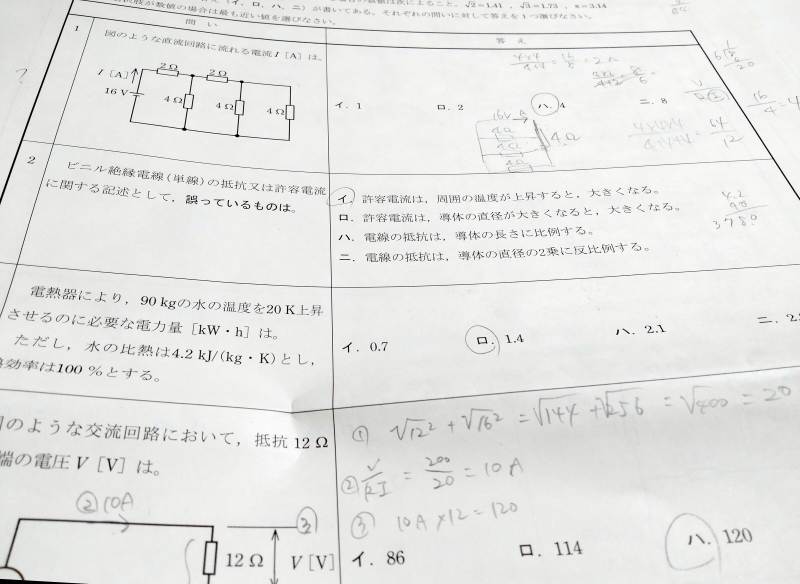 選択肢が数値の場合は最も近い値を選びなさい。
(イ、ロ、ハ、ニ)が書いてある。それぞれの問いに対して答えを1つ選びなさい。
√2＝1.41，√3＝1.73，π＝3.14
問い
答え
1
図のような直流回路に流れる電流I〔A〕は。
I〔A〕
16 V
2Ω 2Ω
4Ω 4Ω 4Ω
イ．1 ロ．2 ハ．4 ニ．8
16V A
4Ω
4Ω
= 2A
64
12
16
4
= 4
2
ビニル絶縁電線(単線)の抵抗又は許容電流
に関する記述として，誤っているものは。
イ．許容電流は，周囲の温度が上昇すると，大きくなる。
ロ．許容電流は，導体の直径が大きくなると，大きくなる。
ハ．電線の抵抗は，導体の長さに比例する。
ニ．電線の抵抗は，導体の直径の2乗に反比例する。
4.2
90
3780
電熱器により，90 kgの水の温度を20 K上昇
させるのに必要な電力量〔kW・h〕は。
ただし，水の比熱は4.2 kJ/(kg・K)とし，
熱効率は100 %とする。
イ．0.7 ロ．1.4 ハ．2.1 ニ．2.
図のような交流回路において，抵抗 12 Ω
端の電圧V〔V〕は。
② 10A
③
12 Ω V〔V〕
① √12² + √16² = √144 + √256 = √400 = 20
② V/RI = 200/20 = 10A
③ 10A×12=120
イ．86 ロ．114 ハ．120